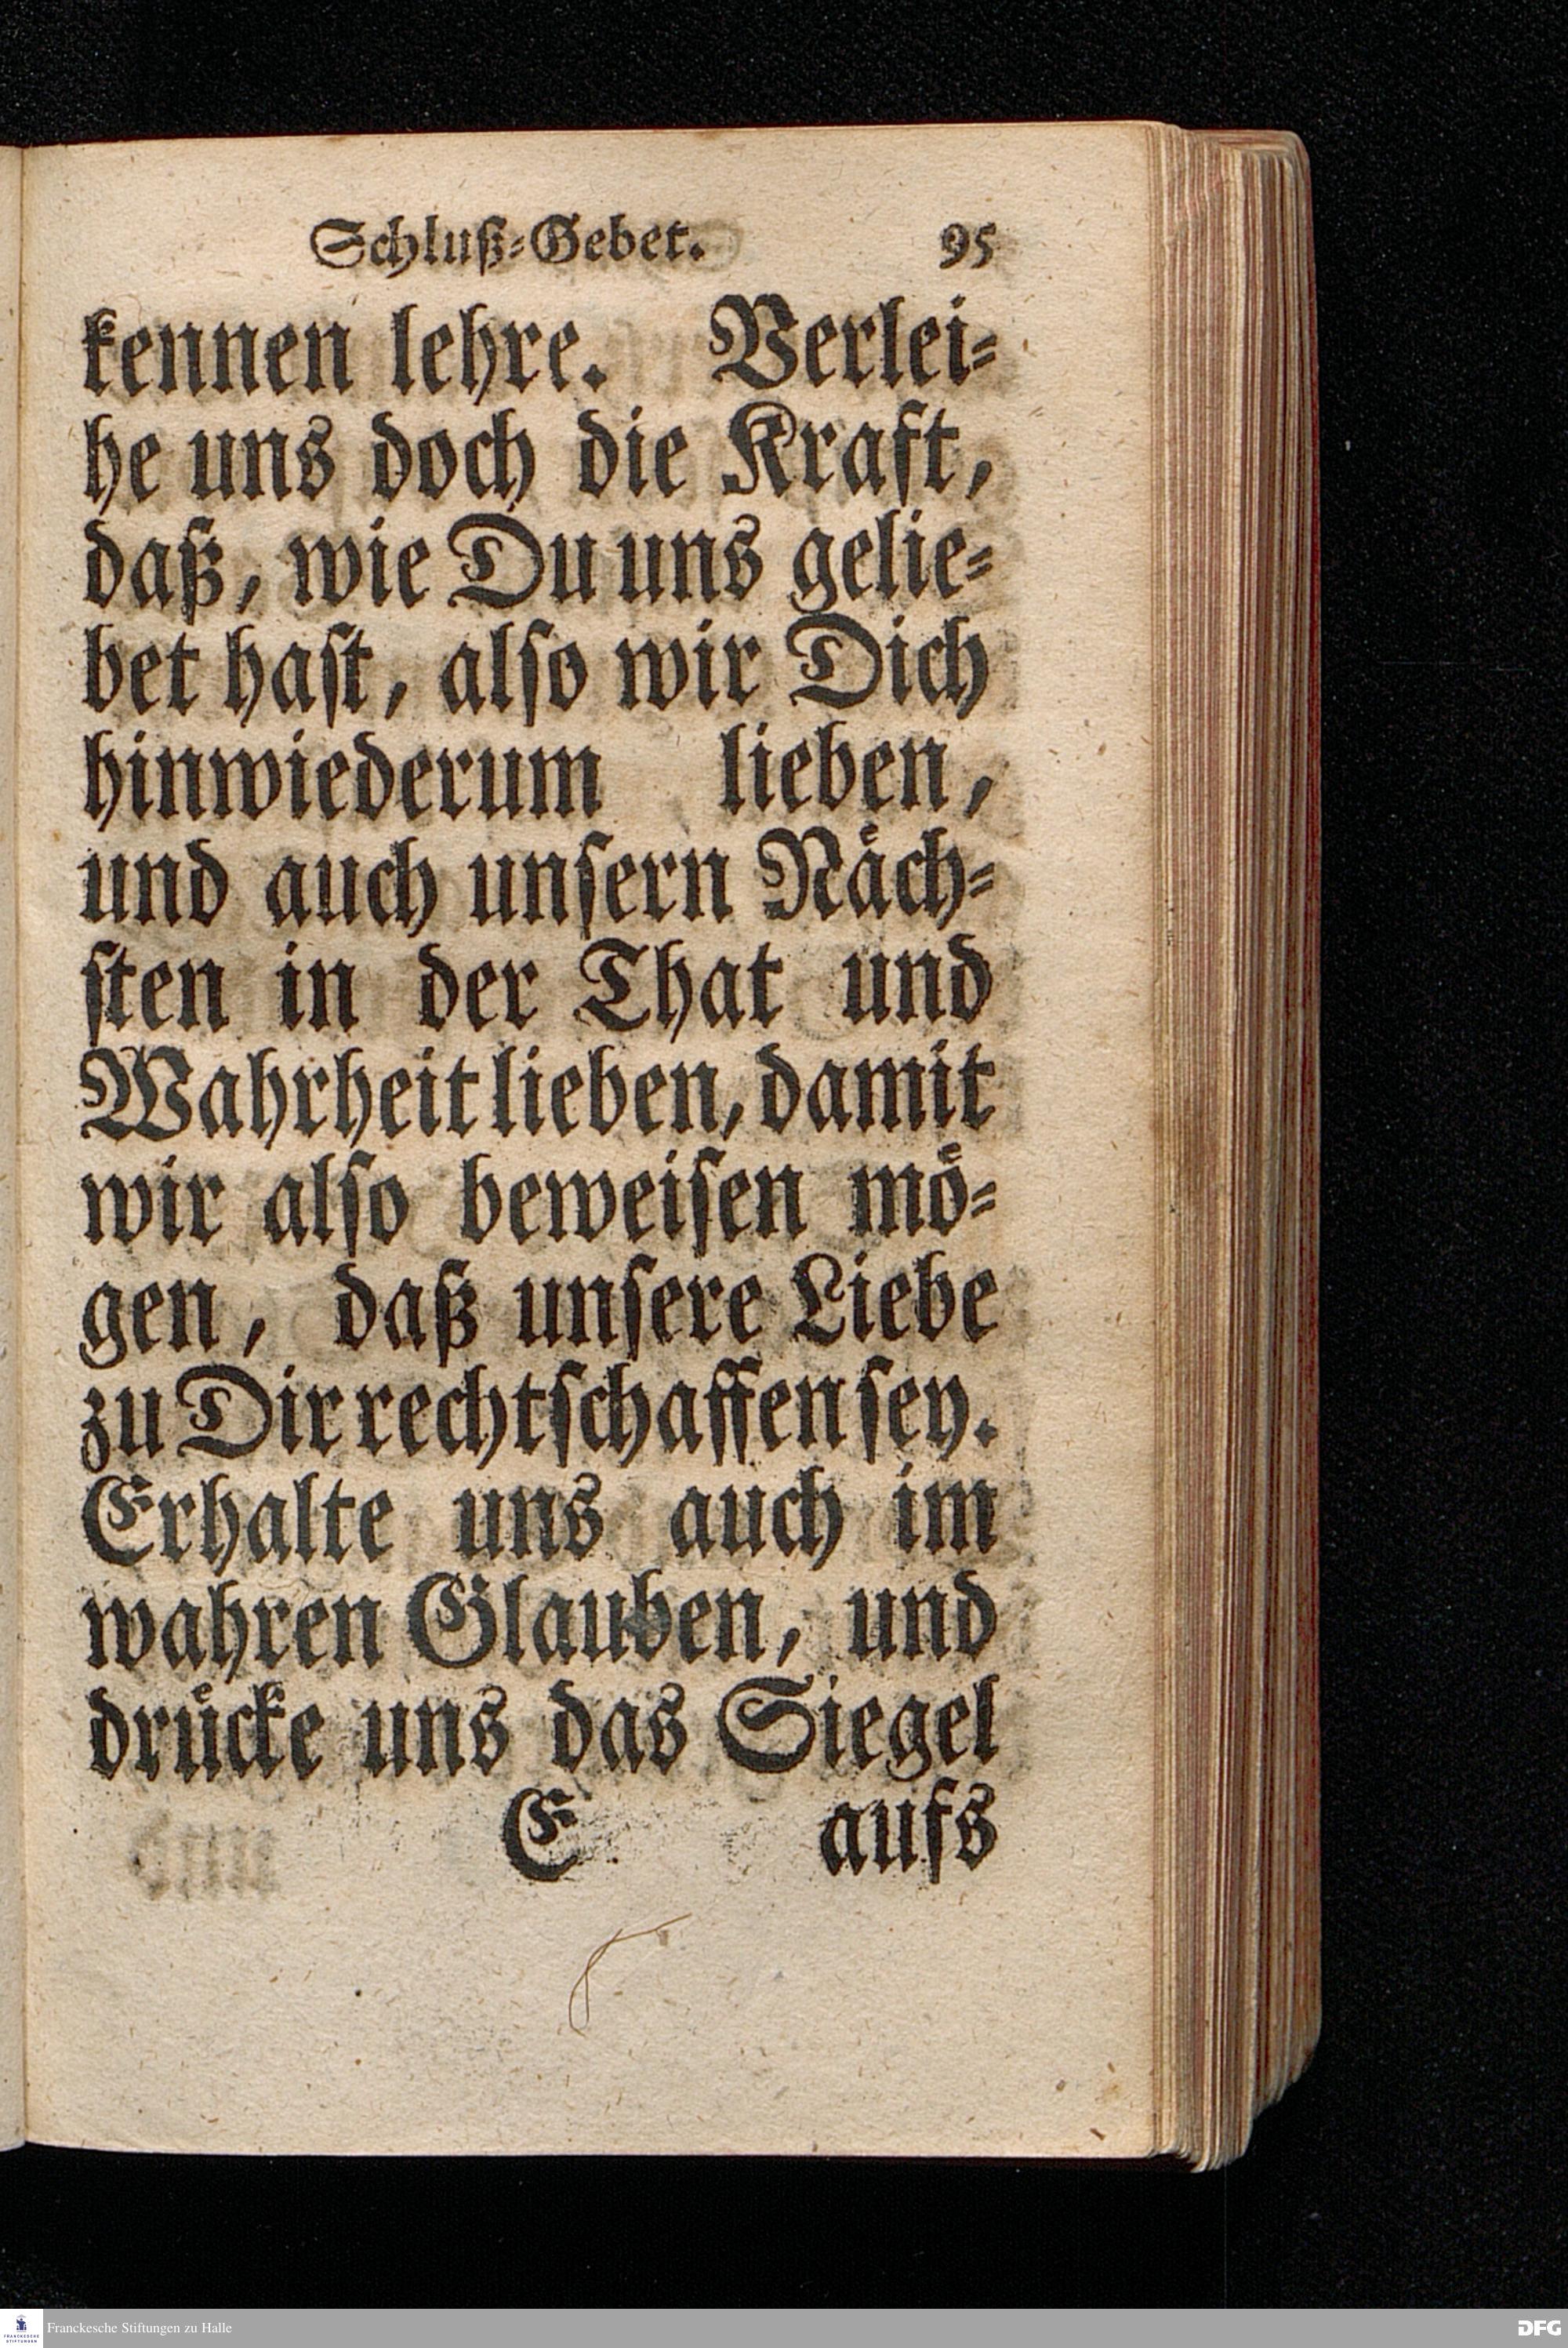 Schluß-Gebet. 95
kennen lehre. Verlei-
he uns doch die Kraft,
daß, wie Du uns gelie-
bet hast, also wir Dich
hinwiederum lieben,
und auch unsern Näch-
sten in der That und
Wahrheit lieben, damit
wir also beweisen mö-
gen, daß unsere Liebe
zu Dir rechtschaffen sey.
Erhalte uns auch im
wahren Glauben, und
drücke uns das Siegel
E aufs
FRANCKESCHE STIFTUNGEN
Franckesche Stiftungen zu Halle
DFG